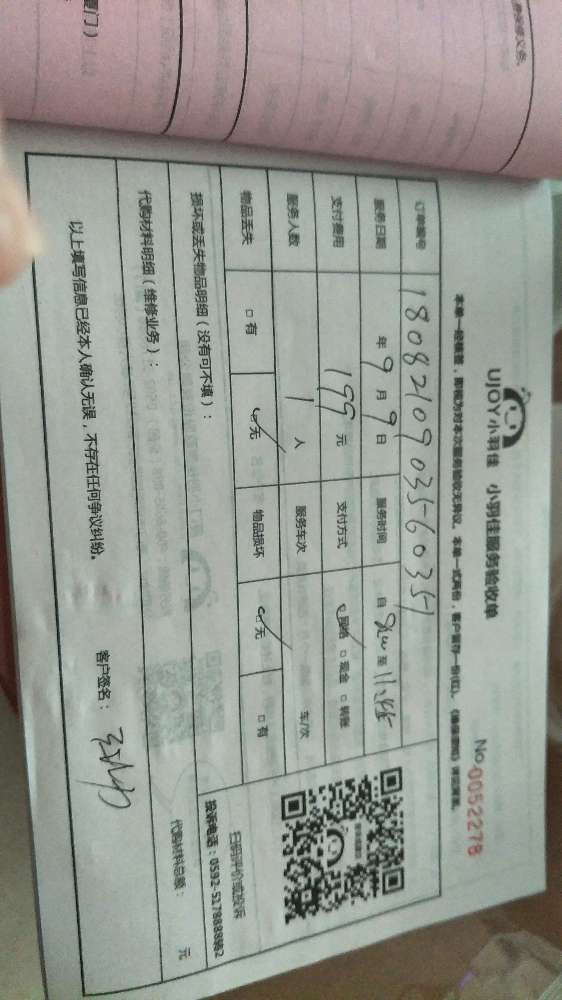 UJOY小羽佳 小羽佳服务验收单
No.0052278
本单一经核普，即视为对本次服务验收无异议。本单一式两份，客户留存一份(红)。
订单编号 1808210903560351
服务日期 年9月9日 服务时间 自 至
支付费用 199元 支付方式 网络 □现金 □转账
服务人数 1人 服务车次 车/次
物品丢失 □有 ☑无 物品损坏 ☑无 □有
扫码评价或投诉
投诉电话：0592-5178888转2
损坏或丢失物品明细（没有可不填）：
代购材料明细（维修业务）：
代购材料总额： 元
以上填写信息已经本人确认无误，不存在任何争议纠纷。
客户签名：
厦门）